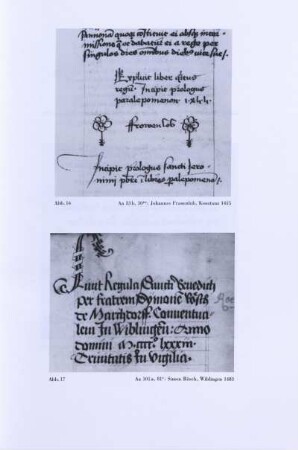 annona quoq; constituit ei absq; inter
missione que dabatur ei a rege per
singulos dies omnibus diebus vite sue/.
Explicit liber q̈rtus
regū. Incipit prologus
paralepomenon
ffrowenlob
Incipit prologus sancti Jero
nimi pbri ī libros palepomenō/.
Abb. 16
An 53 b, : Johannes Frowenlob, Konstanz 1455
Finit Regula Sancti Benedicti
per fratrem Symonē Rösch
de Marchdorff Conventua
lem in Wiblingen: Anno
domini M.cccc. lxxxiii.
Trinitatis in vigilia.
Abb. 17
: Simon Rösch, Wiblingen 1483